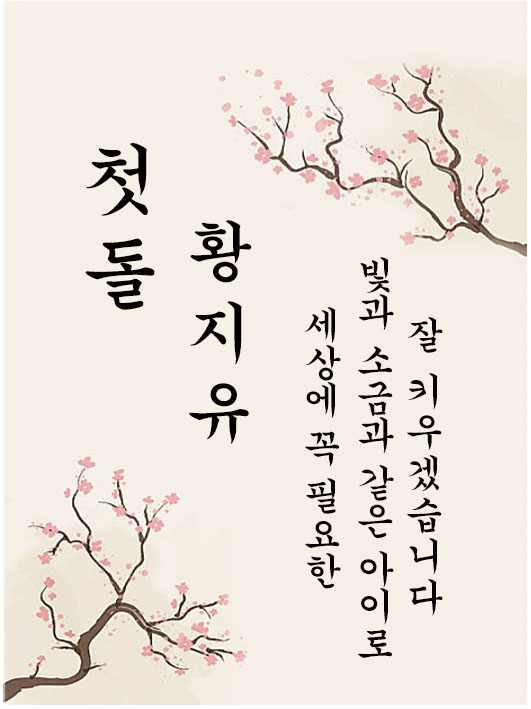 첫돌
황지유
세상에 꼭 필요한
빛과 소금과 같은 아이로
잘 키우겠습니다